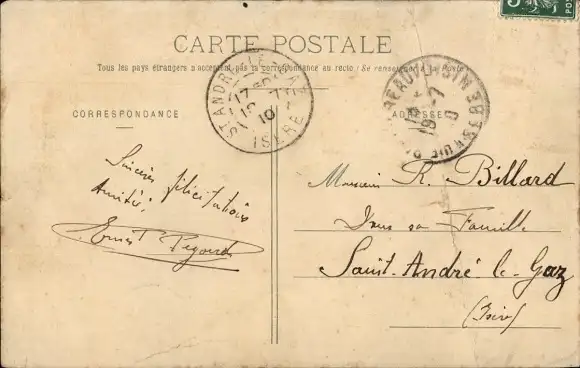 CARTE POSTALE
Tous les pays étrangers n'acceptent pas la correspondance au recto (Se renseigner à la Poste)
ST ANDRÉ-LE-GAZ
17
10
ISÈRE
CORRESPONDANCE
ADRESSE
Sincères félicitations
Amitiés
Ernest
Monsieur R. Billard
Dans sa Famille
Saint-André-le-Gaz
(Isère)